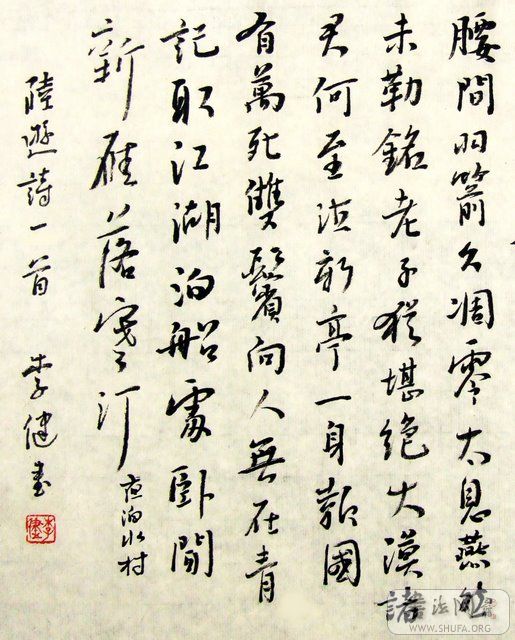 腰間羽箭久凋零太息燕然
未勒銘老子猶堪絕大漠諸
君何至泣新亭一身報國
有萬死雙鬢向人無在青
記取江湖泊船處臥聞
新雁落寒汀
夜泊水村
陸遊詩一首 李健書
李健
WWW.SHUFA.ORG